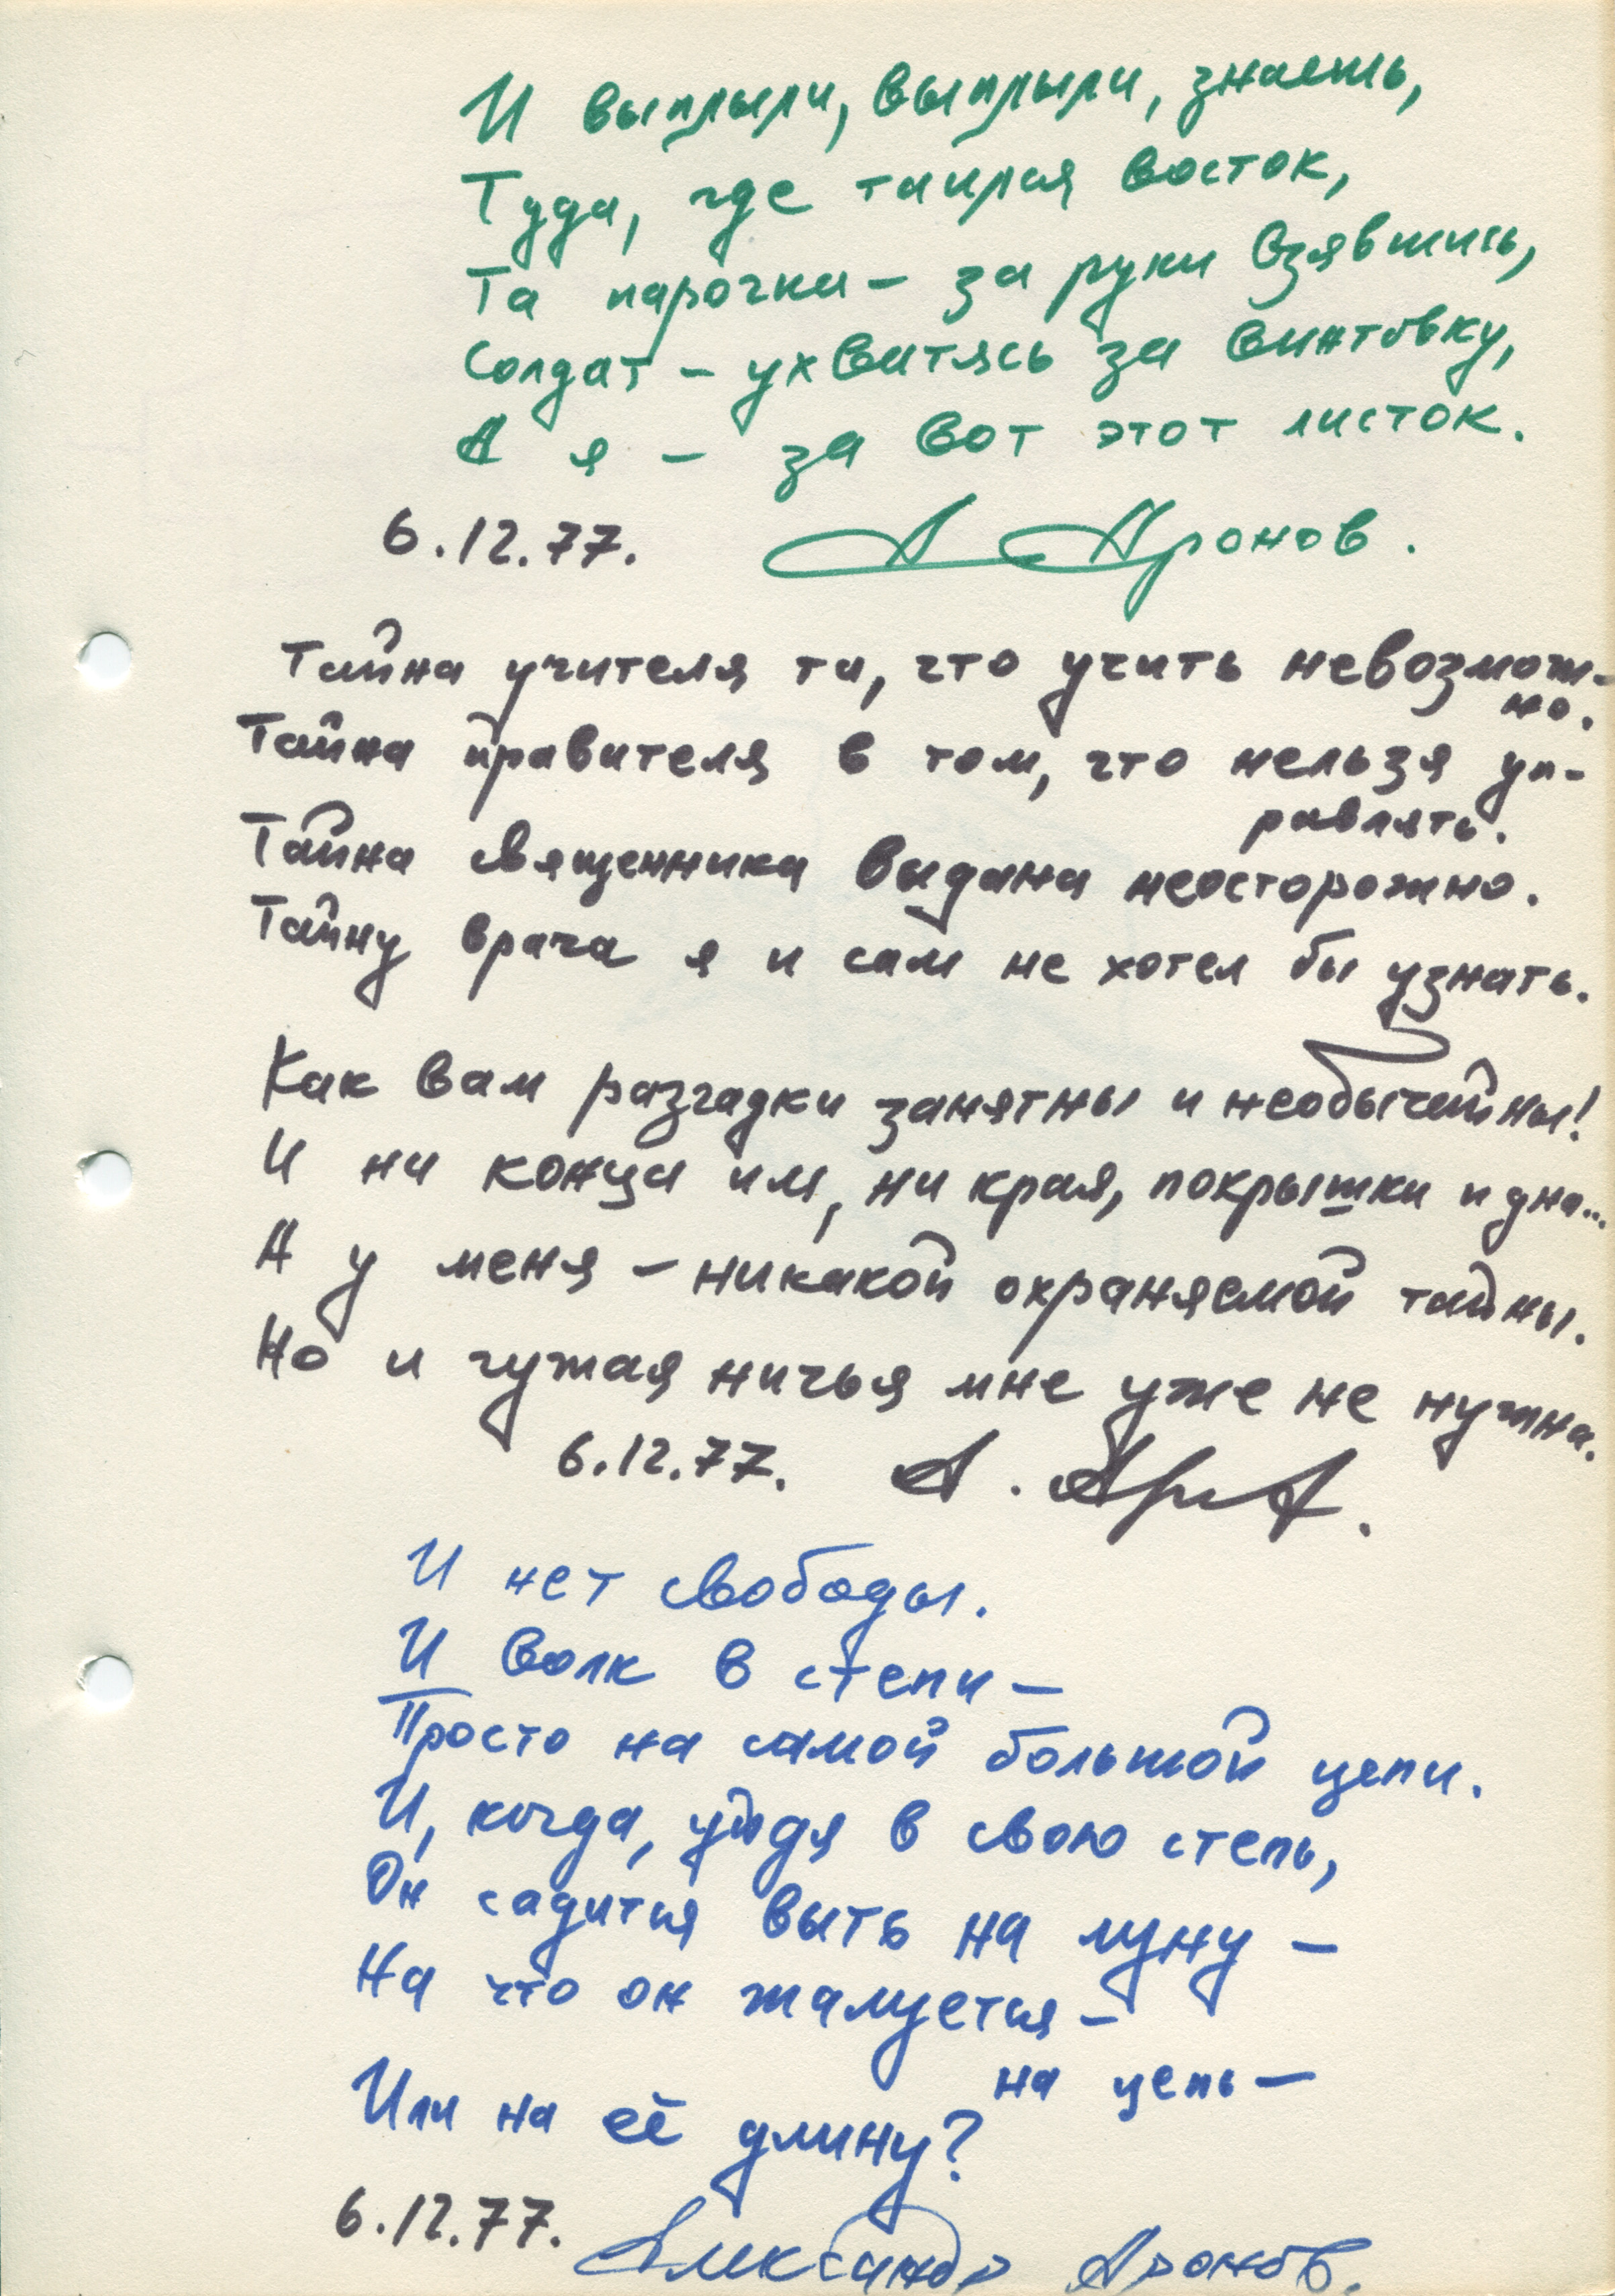 И выплыли, выплыли, знаешь,
Туда, где таился восток,
Та парочка — за руки взявшись,
Солдат — ухватясь за винтовку,
А я — за вот этот листок.
6.12.77. А Аронов.
Тайна учителя та, что учить невозмож-
но.
Тайна правителя в том, что нельзя уп-
равлять.
Тайна священника выдана неосторожно.
Тайну врача я и сам не хотел бы узнать.
Как вам разгадки занятны и необычайны!
И ни конца им, ни края, покрышки и дна...
А у меня — никакой охраняемой тайны.
Но и чужая ничья мне уже не нужна.
6.12.77. А.
И нет свободы.
И волк в степи —
Просто на самой большой цепи.
И, когда, уйдя в свою степь,
Он садится выть на луну —
На что он жалуется —
на цепь —
Или на её длину?
6.12.77. Александр Аронов.